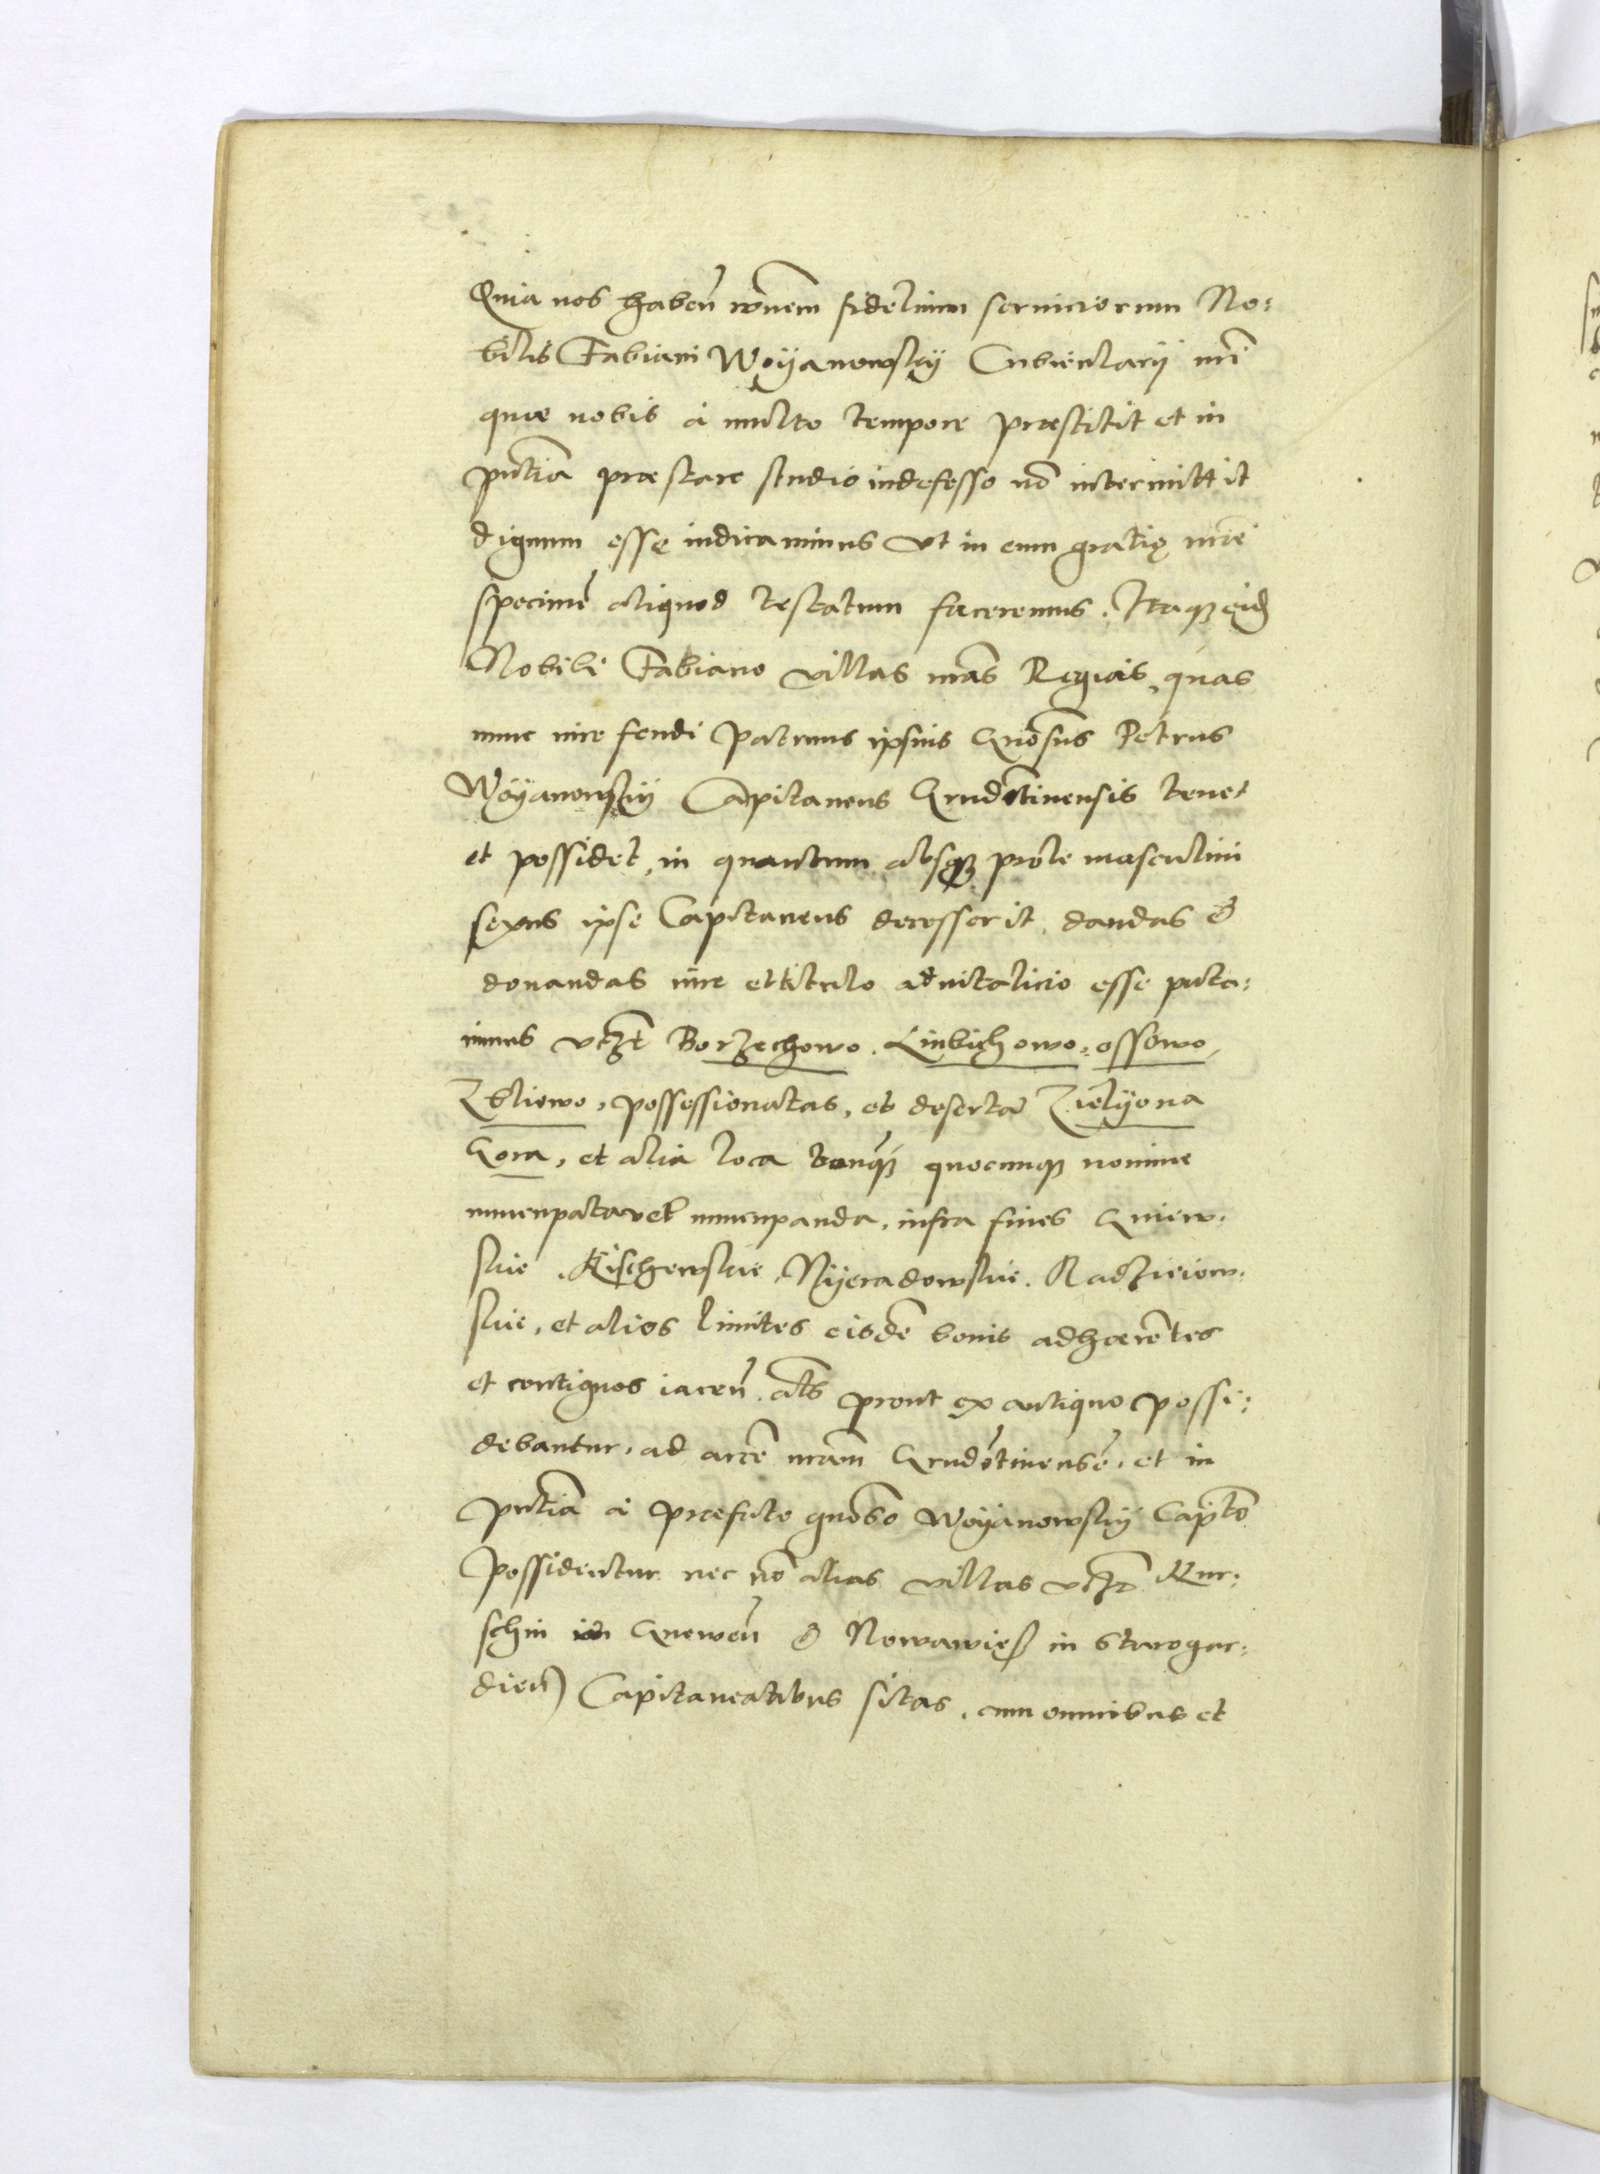 Quia nos haben̄ rōnem fidelium seruiciorum No:
bilis Fabiani Woyanowsky Cubicularij nrī
quae nobis à multo tempore praestitit et in
pntiā praestare studio indefesso nō intermittit
dignum esse iudicauimus vt in eum gratię nrāe
specimē aliquod testatum faceremus. Itaqȝ eid
Nobili Fabiano villas nrās Regias, quas
nunc iure feudi patruus ipsius Gnōsus Petrus
Woyanowsky Capitaneus Grudētinensis tenet
et possidet, in quantum absqȝ prole masculini
sexus ipse Capitaneus decesserit, dandas &
donandas iure et titulo aduitalicio esse puta:
uimus vtzt Borzechowo. Linbichowo, ossowo,
Zbliewo, possessionatas, et deserta Zielyona
Gora, et alia loca tanqȝ quocunqȝ nomine
nuncupata vel nuncupanda, infra fines Gniew:
skie, Kischewskie, Nyeradowskie. Radzieiow:
skie, et alios limites eisdē bonis adhaerētes
et contiguos iacen̄ als prout ex antiquo possi:
debantur, ad arcē nrām Grudētinensē, et in
pntiā à praefato gnōso Woyanowsky Capto
possidentur nec nō alias villas vtzt Kur:
schin in Gnewen̄ & Nowawieß in Starogar:
dien̄ Capitaneatibus sitas, cum omnibus et